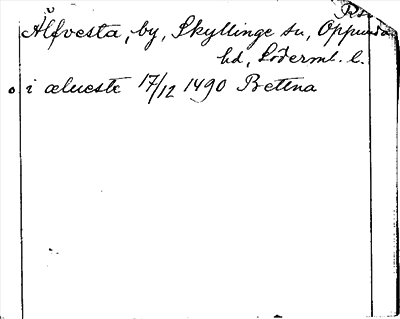 Älfvesta, by, Skyllinge sn, Oppunda
hd, Söderml. l.
i ælueste 17/12 1490 Bettna